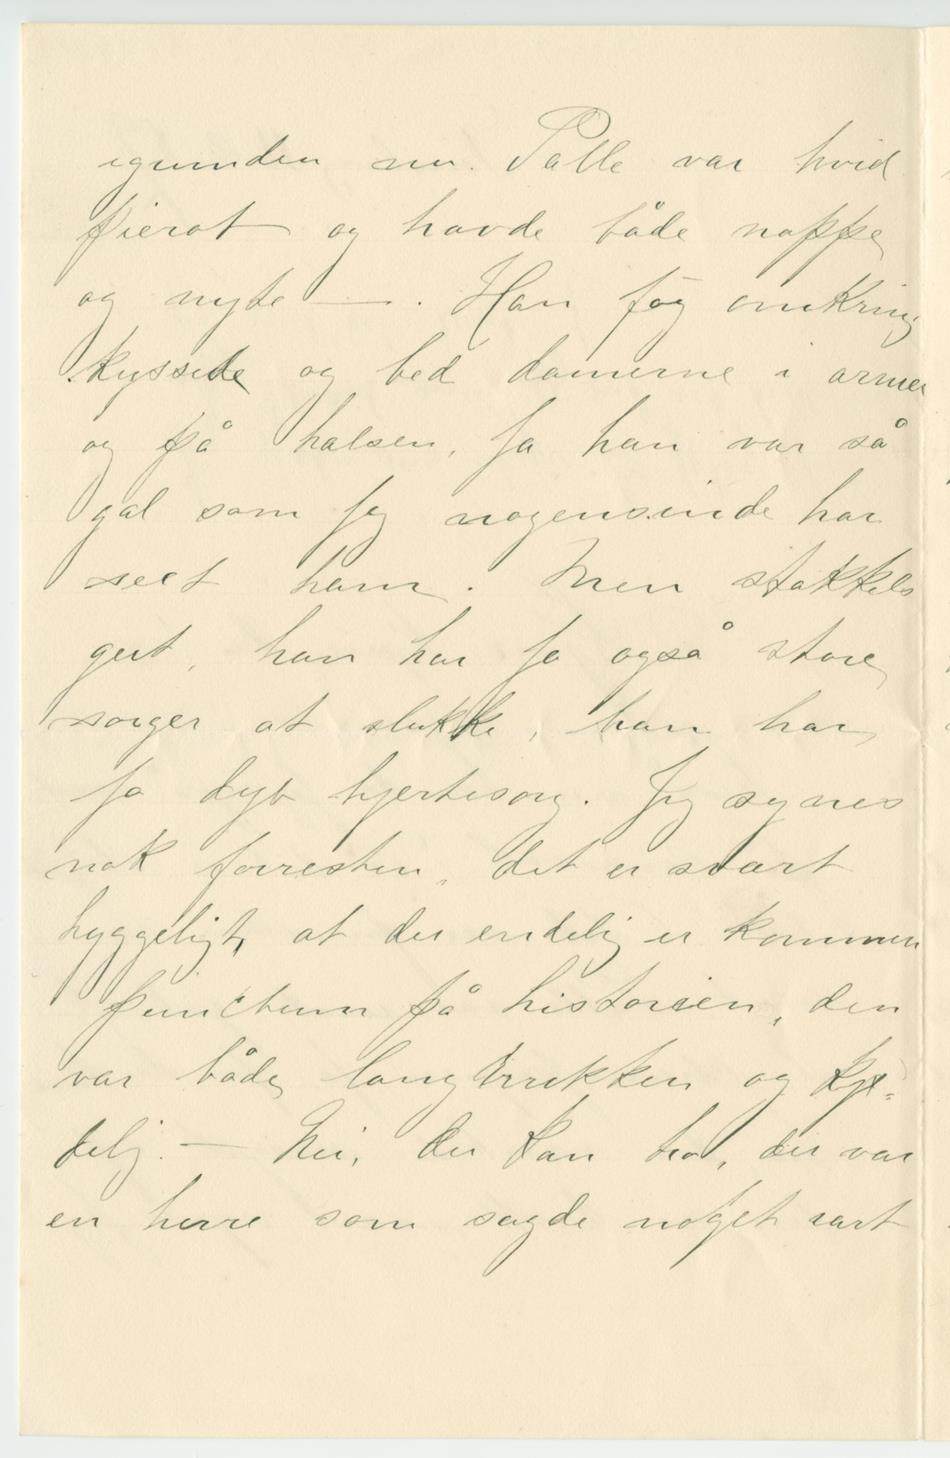 igrunden nu. Palle var hvid
pierot og havde både nappe
og nyte —. Han føg omkring
kyssede og bed damerne i armen
og på halsen, ja han var så
gal som jeg nogensinde har
seet ham. Men stakkels
gut, han har jo også store
sorger at slukke, han har
jo dyb hjertesorg. Jeg synes
nok forresten, det er svært
hyggeligt, at der endelig er kommen
punctum på historien, den
var både langtrukken og kje-
delig. — Nei, du kan tro, der var
en herre som sagde noget rart